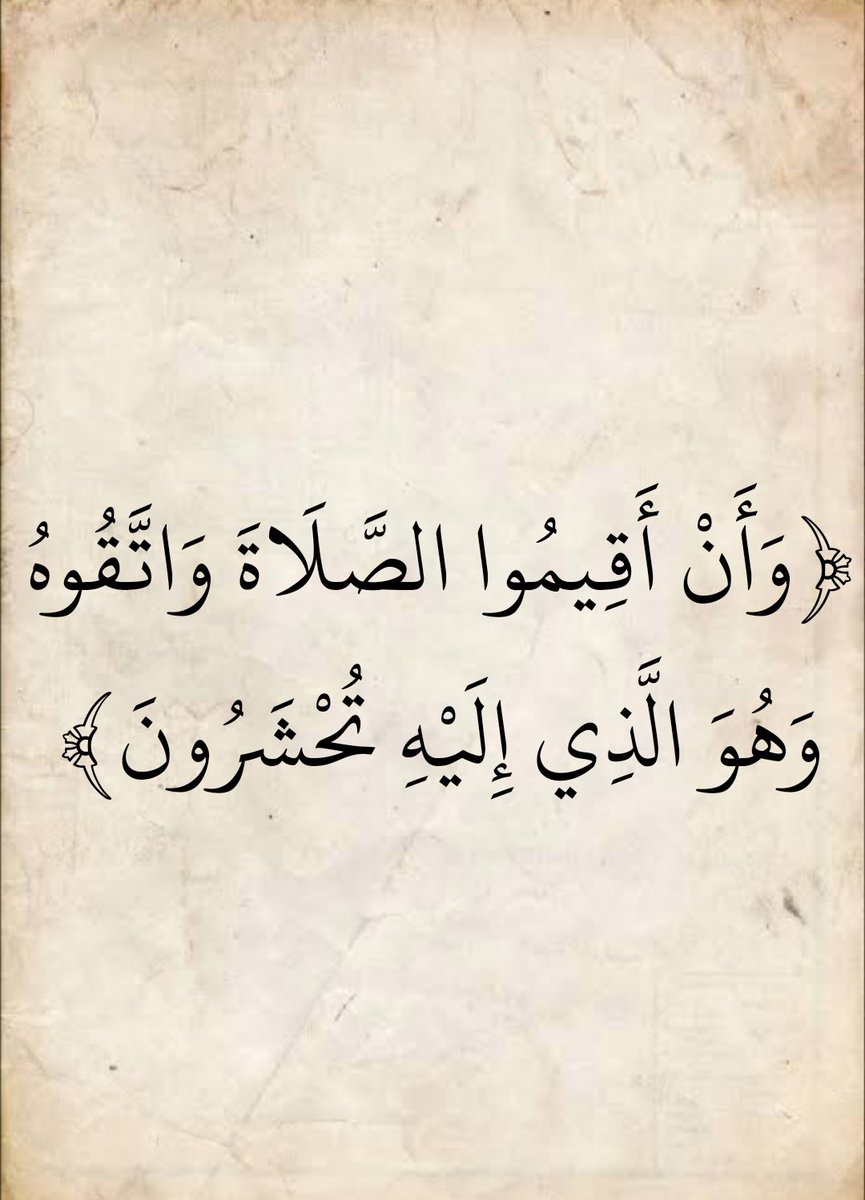 ﴿وَأَنْ أَقِيمُوا الصَّلَاةَ وَاتَّقُوهُ
وَهُوَ الَّذِي إِلَيْهِ تُحْشَرُونَ﴾